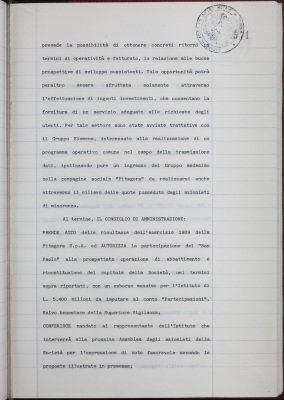 571
prevede la possibilità di ottenere concreti ritorni in
termini di operatività e fatturato, in relazione alle buone
prospettive di sviluppo sussistenti. Tale opportunità potrà
peraltro essere sfruttata solamente attraverso
l'effettuazione di ingenti investimenti, che consentano la
fornitura di un servizio adeguato alle richieste degli
utenti. Per tale motivo sono state avviate trattative con
il Gruppo Siemens, interessato alla realizzazione di un
programma operativo comune nel campo della trasmissione
dati, ipotizzando pure un ingresso del Gruppo medesimo
nella compagine sociale "Pitagora" da realizzarsi anche
attraverso il rilievo delle quote possedute dagli azionisti
di minoranza.
Al termine, IL CONSIGLIO DI AMMINISTRAZIONE:
PRENDE ATTO delle risultanze dell'esercizio 1989 della
Pitagora S.p.A. ed AUTORIZZA la partecipazione del "San
Paolo" alla prospettata operazione di abbattimento e
ricostituzione del capitale della Società, nei termini
sopra riportati, con un esborso massimo per l'Istituto di
L. 5.400 milioni da imputare al conto "Partecipazioni".
Salvo benestare della Superiore Vigilanza;
CONFERISCE mandato al rappresentante dell'Istituto che
interverrà alla prossima Assemblea degli azionisti della
Società per l'espressione di voto favorevole secondo le
proposte illustrate in premessa;